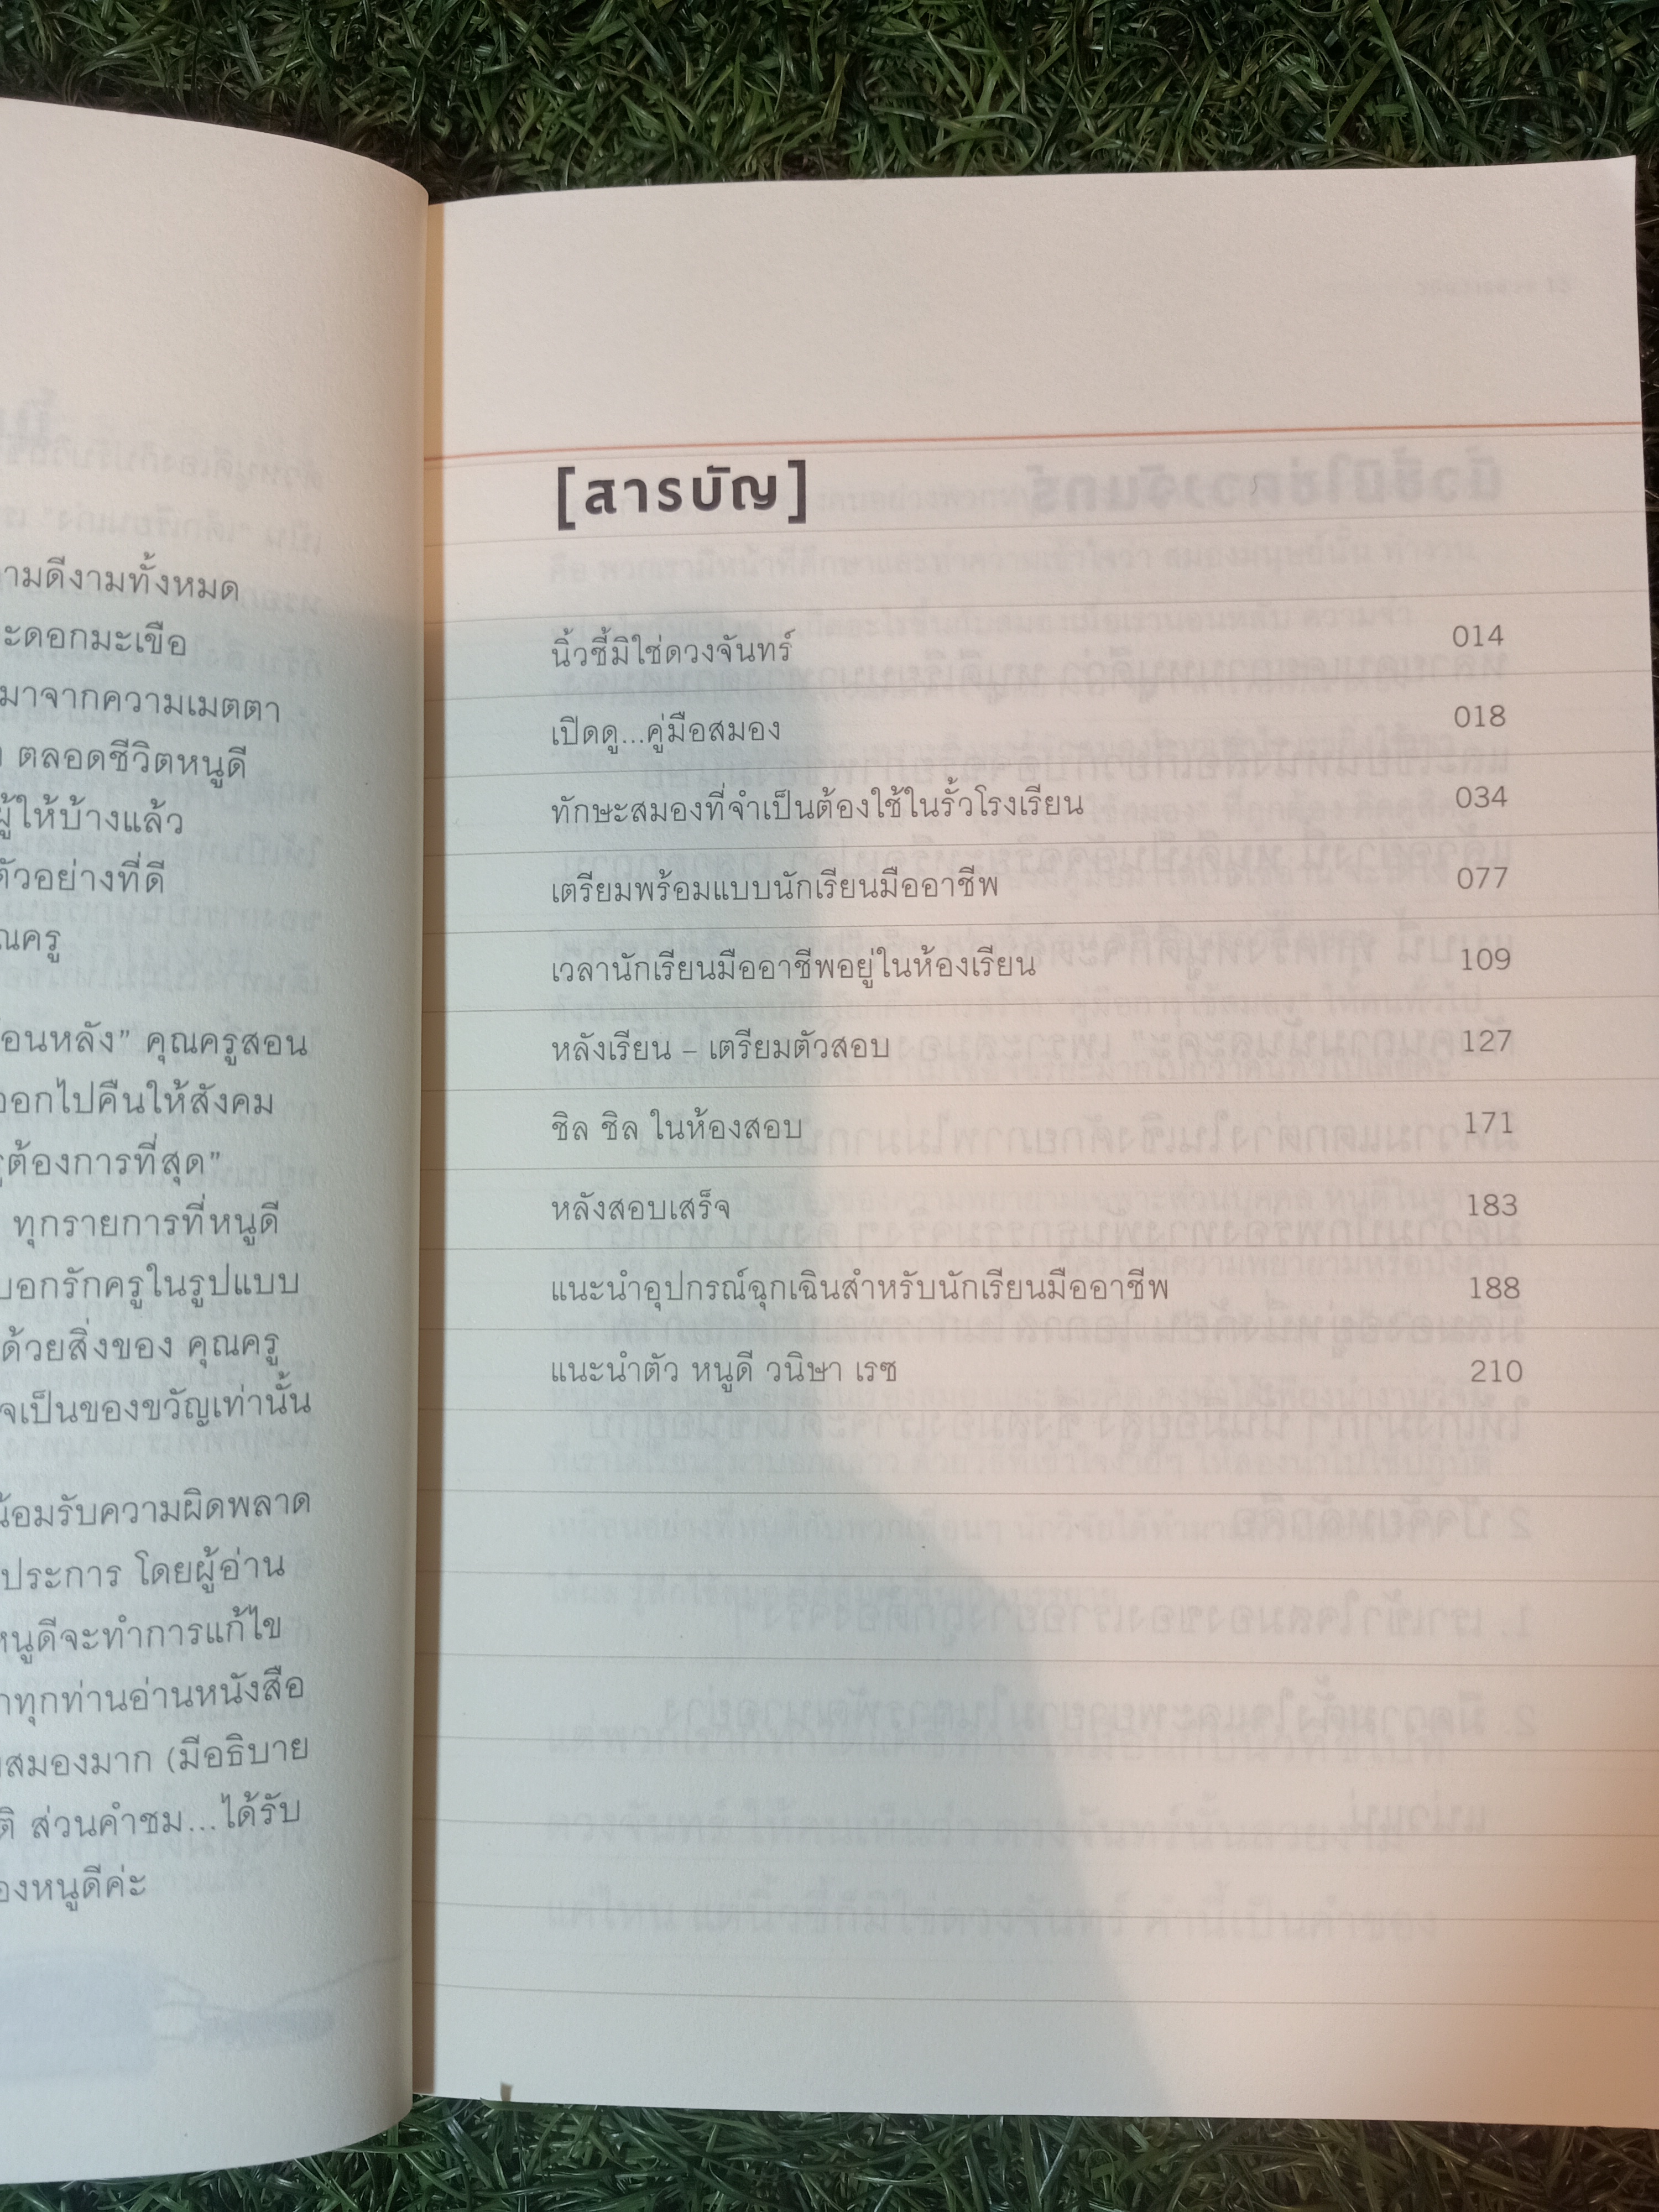 ามดีงามทั้งหมด
ะดอกมะเขือ
มาจากความเมตตา
ตลอดชีวิตหนูดี
ผู้ให้บ้างแล้ว
ตัวอย่างที่ดี
ณครู
อนหลัง” คุณครูสอน
ออกไปคืนให้สังคม
ต้องการที่สุด”
ทุกรายการที่หนูดี
บอกรักครูในรูปแบบ
ด้วยสิ่งของ คุณครู
จเป็นของขวัญเท่านั้น
น้อมรับความผิดพลาด
ประการ โดยผู้อ่าน
หนูดีจะทำการแก้ไข
ทุกท่านอ่านหนังสือ
สมองมาก (มีอธิบาย
ติ ส่วนคำชม...ได้รับ
องหนูดีค่ะ
[สารบัญ]
นิ้วชี้มิใช่ดวงจันทร์ 014
เปิดดู...คู่มือสมอง 018
ทักษะสมองที่จำเป็นต้องใช้ในรั้วโรงเรียน 034
เตรียมพร้อมแบบนักเรียนมืออาชีพ 077
เวลานักเรียนมืออาชีพอยู่ในห้องเรียน 109
หลังเรียน – เตรียมตัวสอบ 127
ชิล ชิล ในห้องสอบ 171
หลังสอบเสร็จ 183
แนะนำอุปกรณ์ฉุกเฉินสำหรับนักเรียนมืออาชีพ 188
แนะนำตัว หนูดี วนิษา เรซ 210